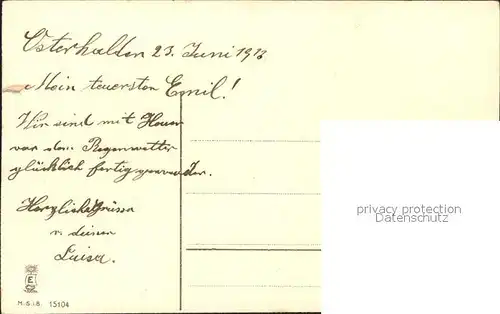 Osterhalden 23. Juni 1913
Mein teuersten Emil!
Wir sind mit Heuen
vor dem Regenwetter
glücklich fertig geworden.
Herzliche Grüsse
v. deiner
Luisa.
E
M.S.i.B. 15104
privacy protection